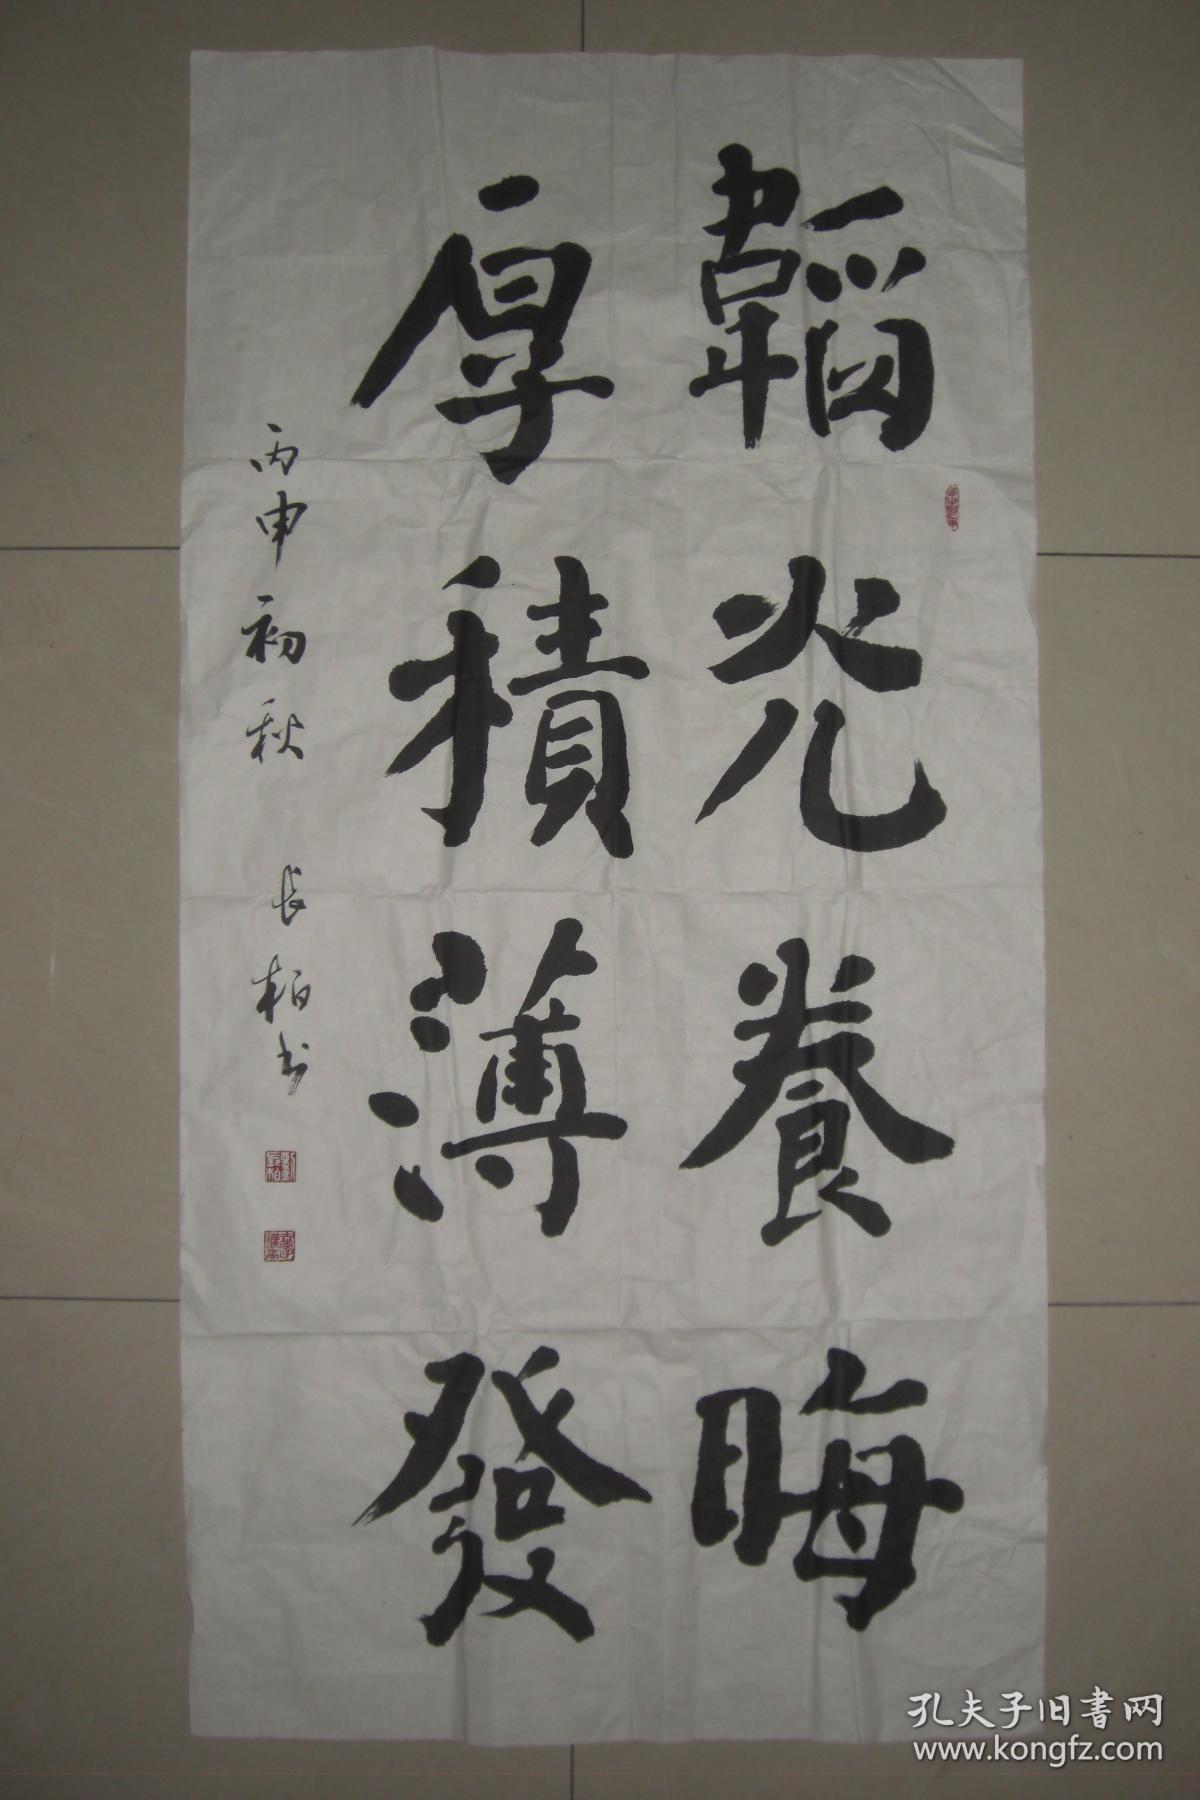 韜光養晦
厚積薄發
丙申初秋 長柏书
孔夫子旧書网
www.kongfz.com